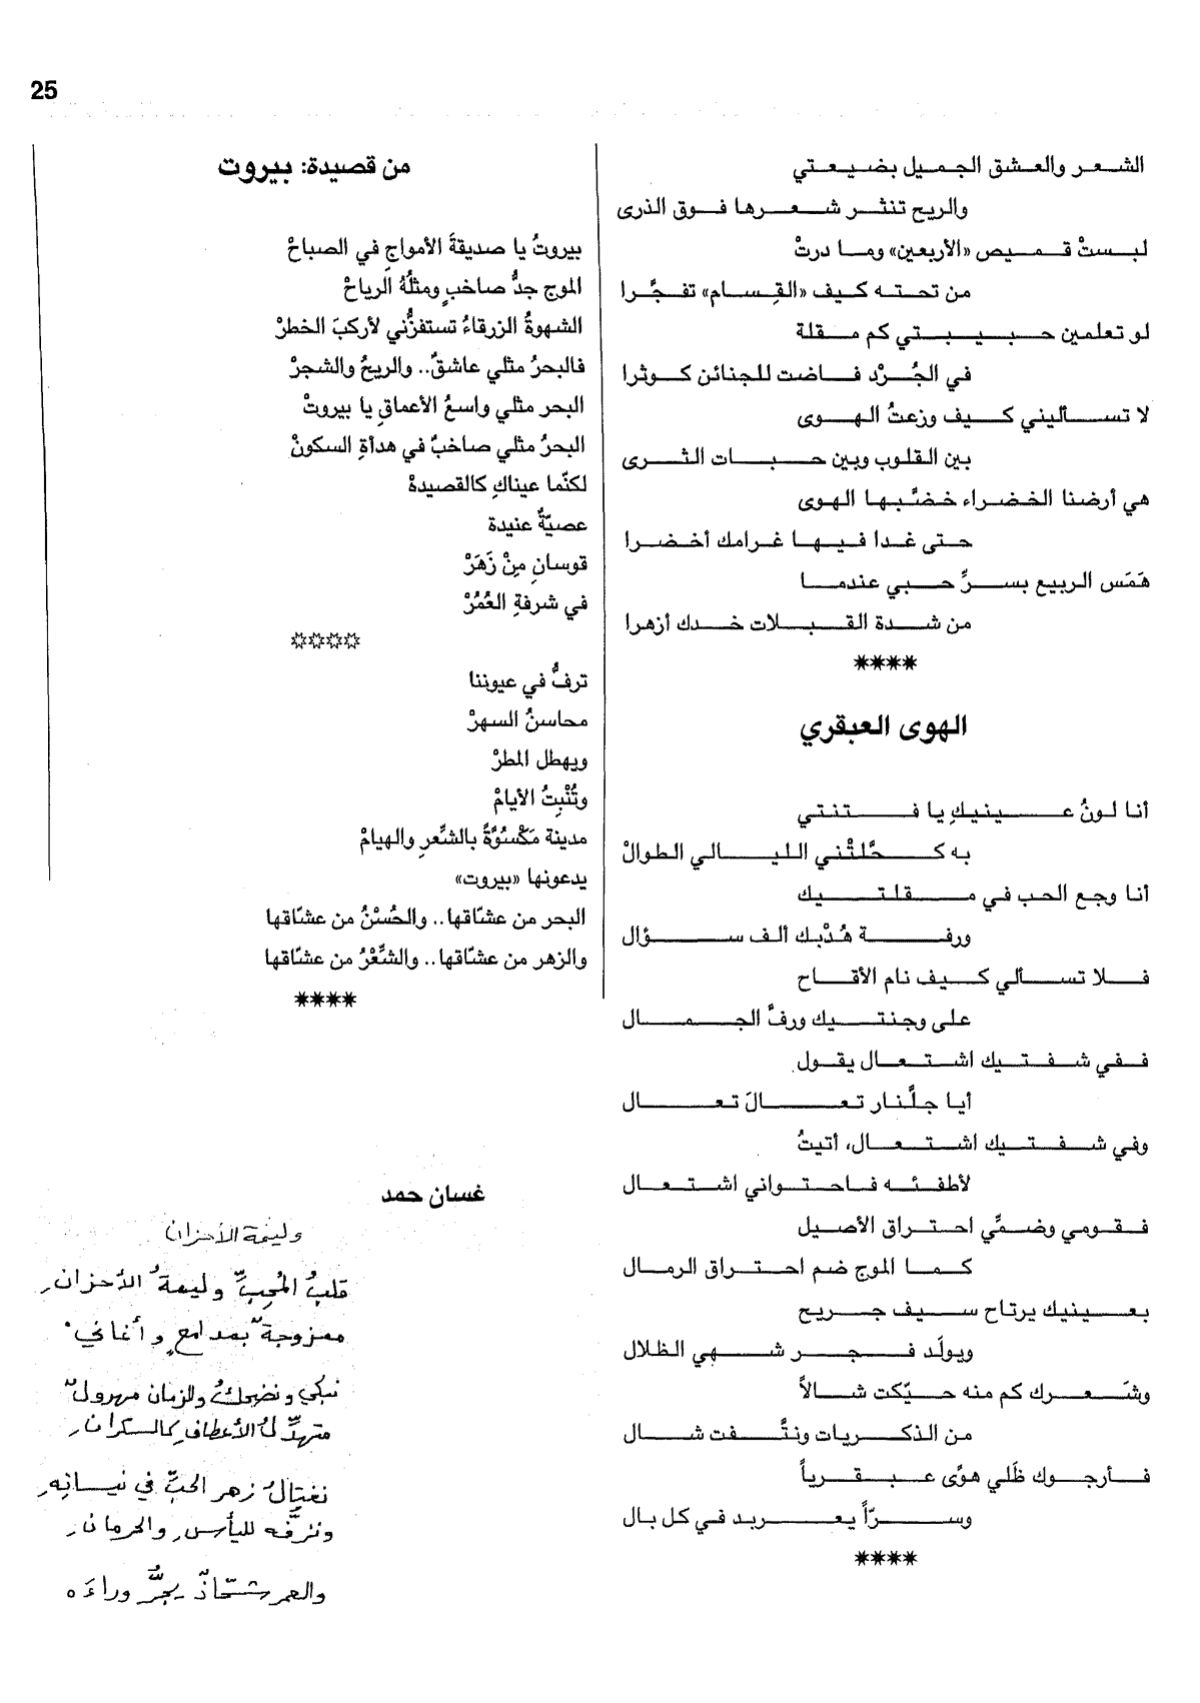 25
الشعر والعشق الجميل بضيعتي
والريح تنثر شعرها فوق الذرى
لبستْ قميص «الأربعين» وما درتْ
من تحته كيف «القِسام» تفجَّرا
لو تعلمين حبيبتي كم مقلة
في الجُرْد فاضت للجنائن كوثرا
لا تسأليني كيف وزعتُ الهوى
بين القلوب وبين حبات الثرى
هي أرضنا الخضراء خضَّبها الهوى
حتى غدا فيها غرامك أخضرا
هَمَس الربيع بسرِّ حبي عندما
من شدة القبلات خدك أزهرا
****
الهوى العبقري
أنا لونُ عينيكِ يا فتنتي
به كحَّلتْني الليالي الطوالْ
أنا وجع الحب في مقلتيك
ورفة هُدْبك ألف سؤال
فلا تسألي كيف نام الأقاح
على وجنتيك ورفَّ الجمال
ففي شفتيك اشتعال يقول
أيا جلَّنار تعالَ تعال
وفي شفتيك اشتعال، أتيتُ
لأطفئه فاحتواني اشتعال
فقومي وضمِّي احتراق الأصيل
كما الموج ضم احتراق الرمال
بعينيك يرتاح سيف جريح
ويولَد فجر شهي الظلال
وشَعرك كم منه حيّكت شالاً
من الذكريات ونتَّفت شال
فأرجوك ظَلي هوًى عبقرياً
وسرّاً يعربد في كل بال
****
من قصيدة: بيروت
بيروتُ يا صديقةَ الأمواجِ في الصباحْ
الموج جدُّ صاخبٍ ومثلُهُ الرياحْ
الشهوةُ الزرقاءُ تستفزُّني لأركبَ الخطرْ
فالبحرُ مثلي عاشقٌ.. والريحُ والشجرْ
البحر مثلي واسعُ الأعماقِ يا بيروتْ
البحرُ مثلي صاخبٌ في هدأةِ السكونْ
لكنّما عيناكِ كالقصيدهْ
عصيّةٌ عنيدة
قوسانِ مِنْ زَهَرْ
في شرفةِ العُمُرْ
****
ترفُّ في عيوننا
محاسنُ السهرْ
ويهطل المطرْ
وتُنْبِتُ الأيامْ
مدينة مَكْسُوَّةً بالشِّعرِ والهيامْ
يدعونها «بيروت»
البحر من عشّاقها.. والحُسْنُ من عشّاقها
والزهر من عشّاقها.. والشِّعْرُ من عشّاقها
****
غسان حمد
وليمة الأحزان
قلبُ المُحِبِّ وليمةُ الأحزانِ
ممزوجةٌ بمدامعٍ وأغاني
نبكي ونضحكُ والزمان مهرولٌ
متهدِّلُ الأعطافِ كالسكرانِ
نغتالُ زهر الحبِّ في نيسانِهِ
ونزفُّه لليأسِ والحرمانِ
والعمر شحّاذٌ يجرُّ وراءَه